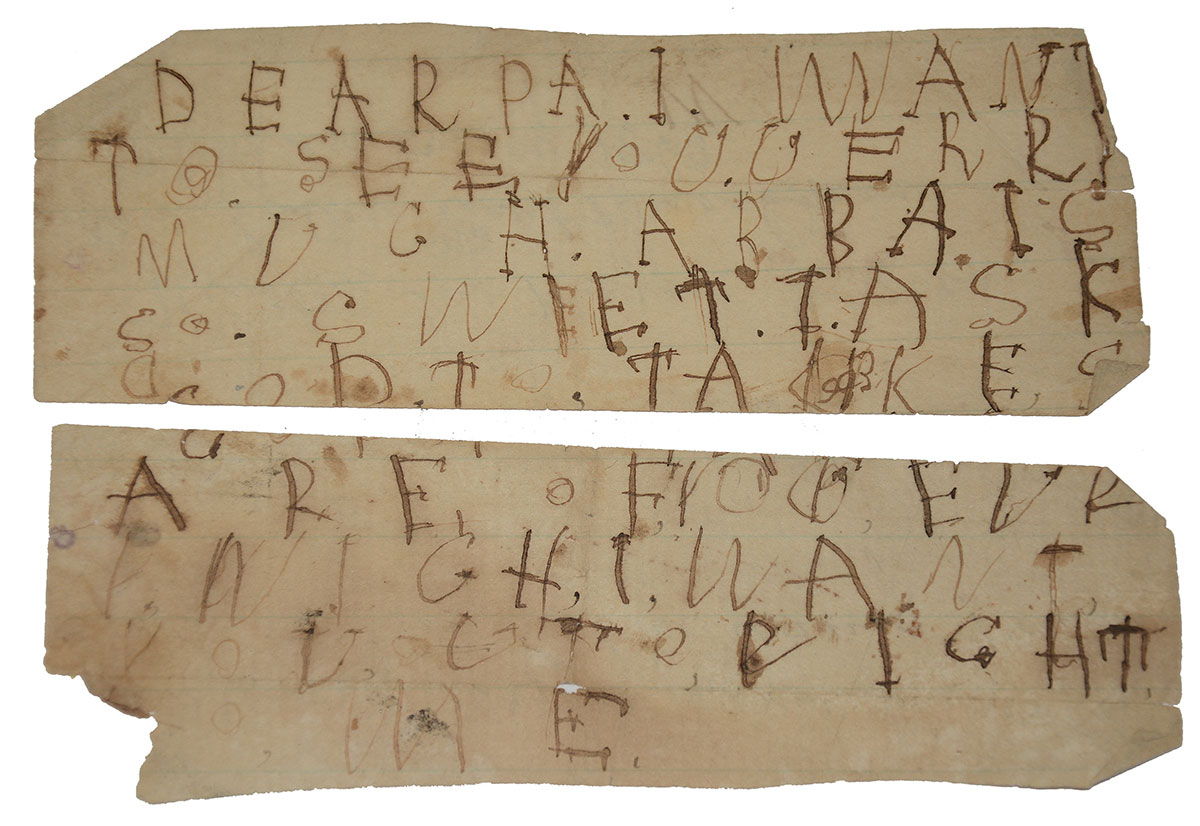 DEAR PA. I. WANT
TO. SEE, YOU. UERRI
MUCH. ABBA. IS
SO. SWEET. I. ASK
GOD TO. TAKE C
ARE, OF, YOU, EVR
Y, NIGH, I, WANT,
YOU, TO, RIGHT,
TO, ME.